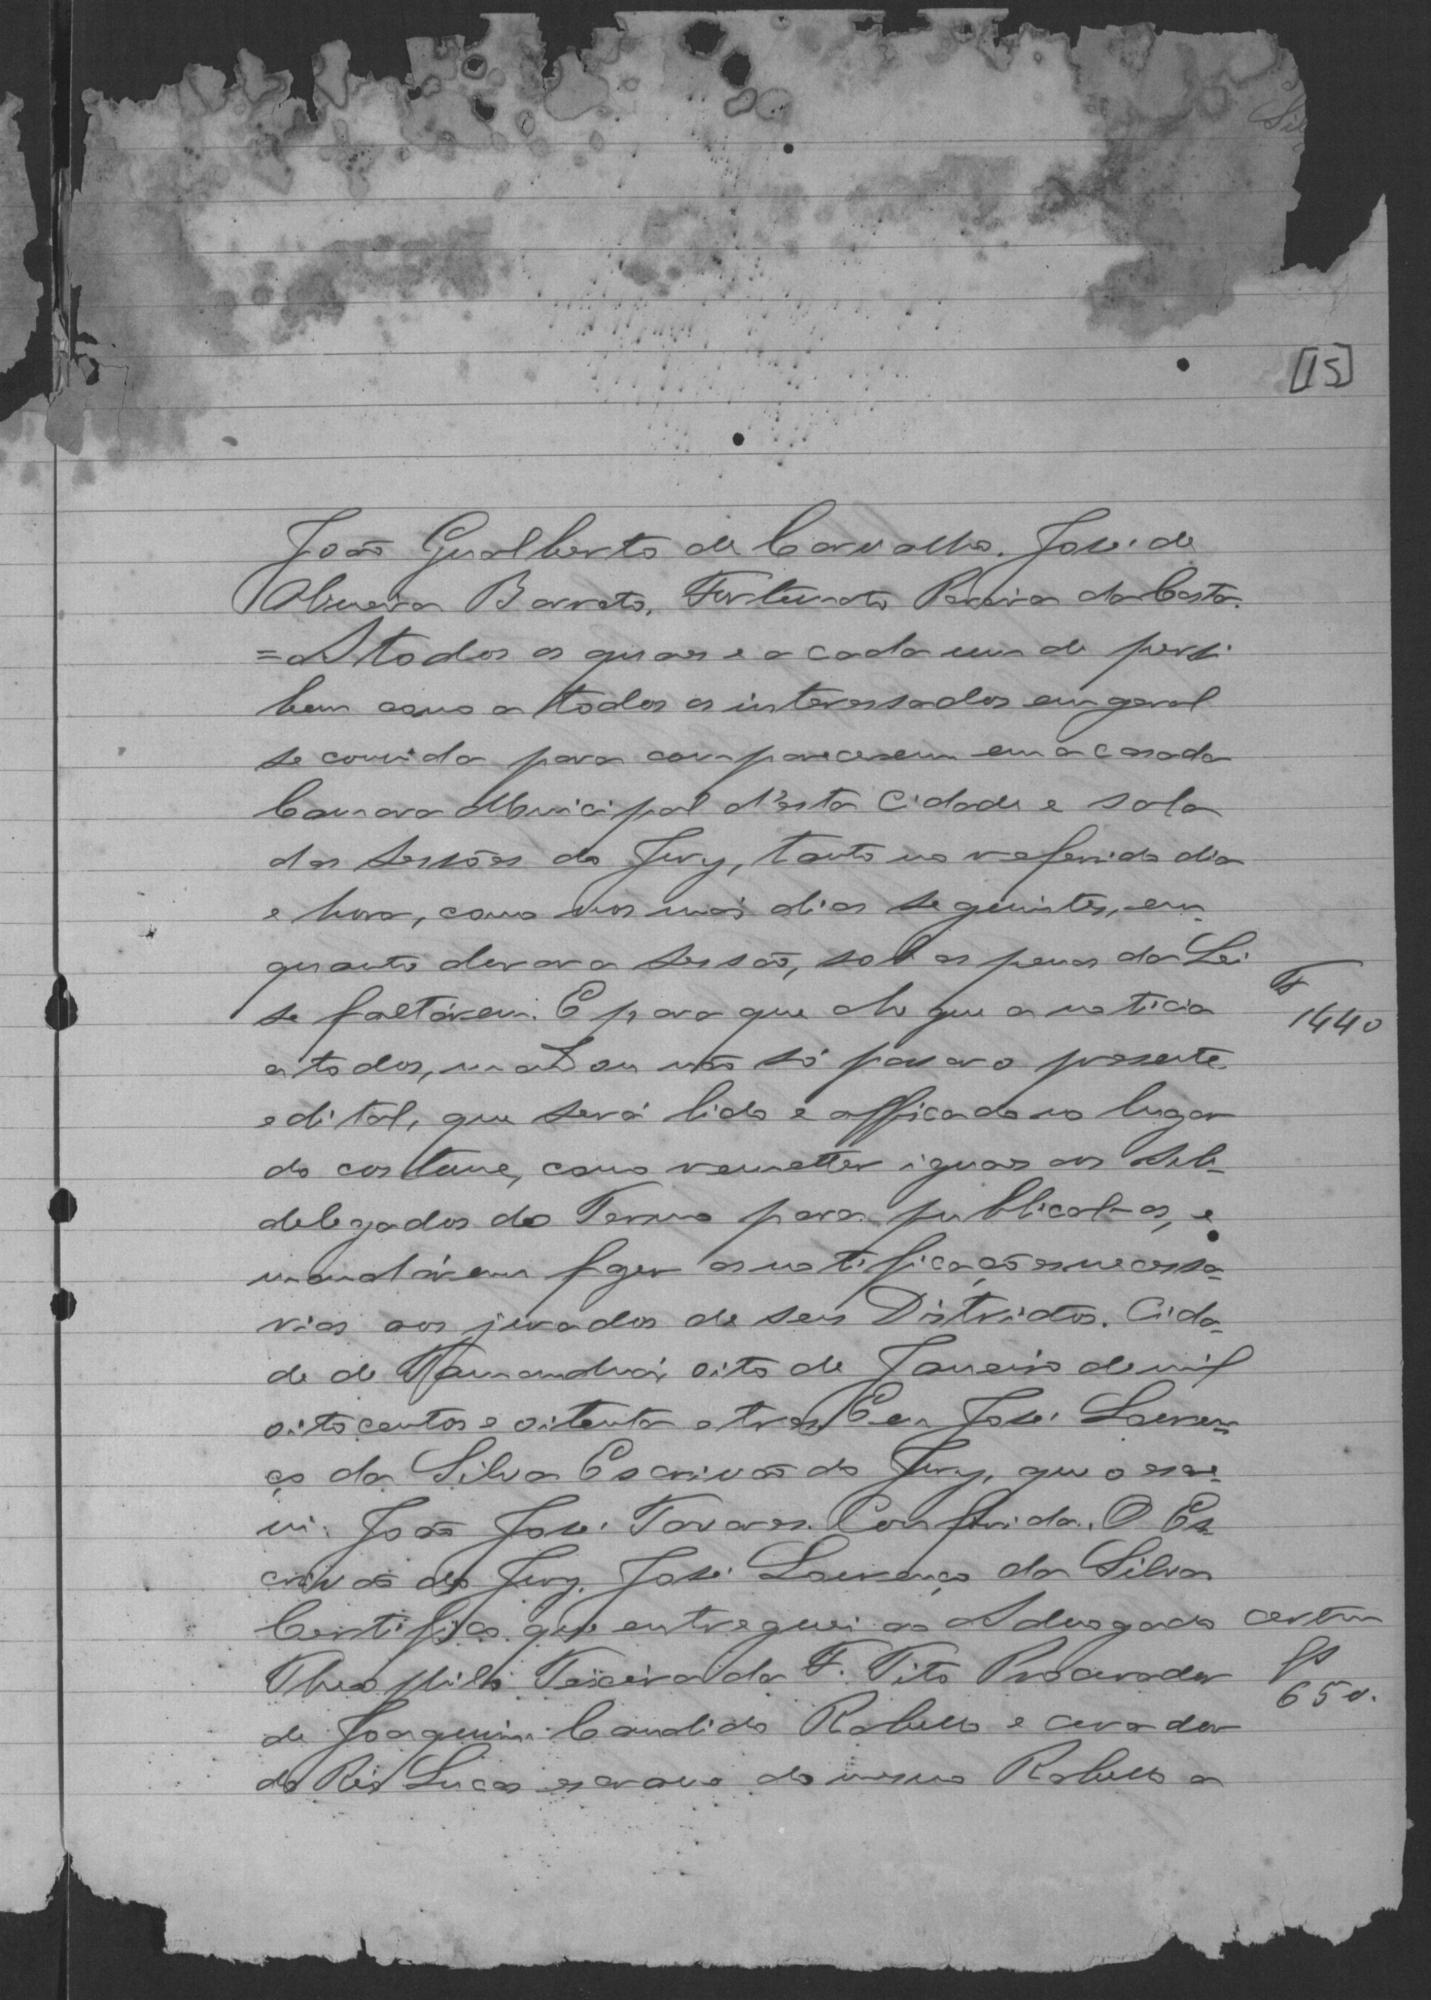 [15]
João Gualberto de Carvalho. José de
Oliveira Barreto. Fortunato Pereira da Costa.
= A todos os quaes e a cada um de per si
bem como a todos os interessados em geral
se convida para comparecerem em a casa da
Camara Municipal d'esta Cidade e sala
das Sessões do Jury, tanto no referido dia
e hora, como nos mais dias seguintes, em-
quanto durar a sessão, sob as penas da Lei
se faltárem. E para que chegue a noticia
1440
a todos, mandou não só passar o presente
edital, que será lido e afficado no lugar
do costume, como remetter iguaes aos Sub-
delegados do Termo para publical-os, e
mandárem fazer as notificações necessa-
rias aos jurados de seus Districtos. Cida-
de de Tamanduá, oito de Janeiro de mil
oitocentos e oitenta e tres. Eu José Louren-
ço da Silva Escrivão do Jury, que o escre-
vi. João José Tavares. Conferida. O Es-
crivão do Jury. José Lourenço da Silva
Certifico que entreguei ao Advogado
Theophilo Teixeira da F. Tito Procurador
650.
de Joaquim Candido Rabello e curador
do Réo Lucas escravo do mesmo Rabello a